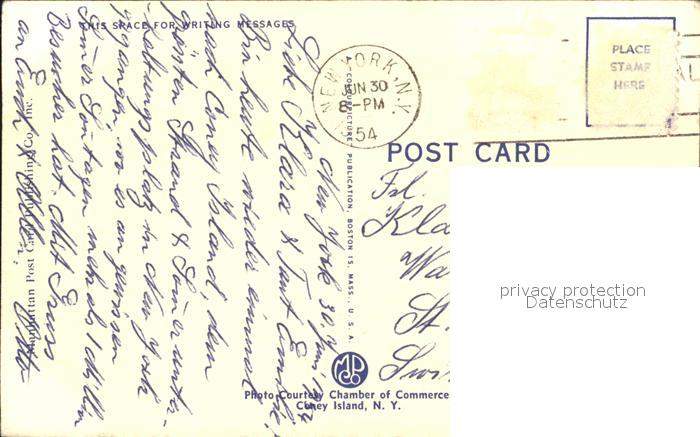 THIS SPACE FOR WRITING MESSAGES
New York 30 Juni 1954
Liebe Klara & Tant Emilie!
Bin heute wieder einmal
nach Coney Island, dem
größten Strand & Sommer unter-
haltungsplatz in New York
gegangen wo es an gewissen
Sommer Sontagen mehr als 1 Million
Besucher hat. Mit Gruss
an Euch
Otto
Manhattan Post Card Publishing Co. Inc.
"COLOURPICTURE" PUBLICATION, BOSTON 15, MASS., U. S. A.
NEW YORK, N.Y.
JUN 30
8-PM
54
PLACE
STAMP
HERE
POST CARD
Frl.
Kla
Wa
St.
Swi
privacy protection
Datenschutz
MPC
Co
Photo Courtesy Chamber of Commerce
Coney Island, N. Y.